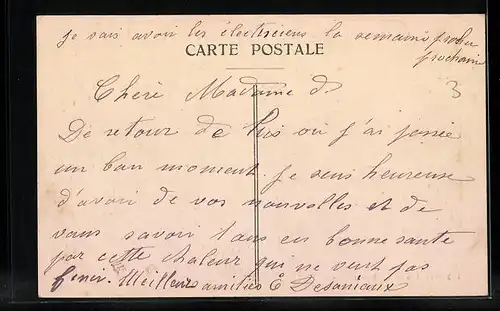 je vais avoir les électriciens la semaine
prochaine
CARTE POSTALE
3
Chère Madame
De retour de où j'ai passé
un bon moment. Je suis heureuse
d'avoir de vos nouvelles et de
vous savoir tous en bonne sante
par cette chaleur qui ne veut pas
finir. Meilleurs amitiés